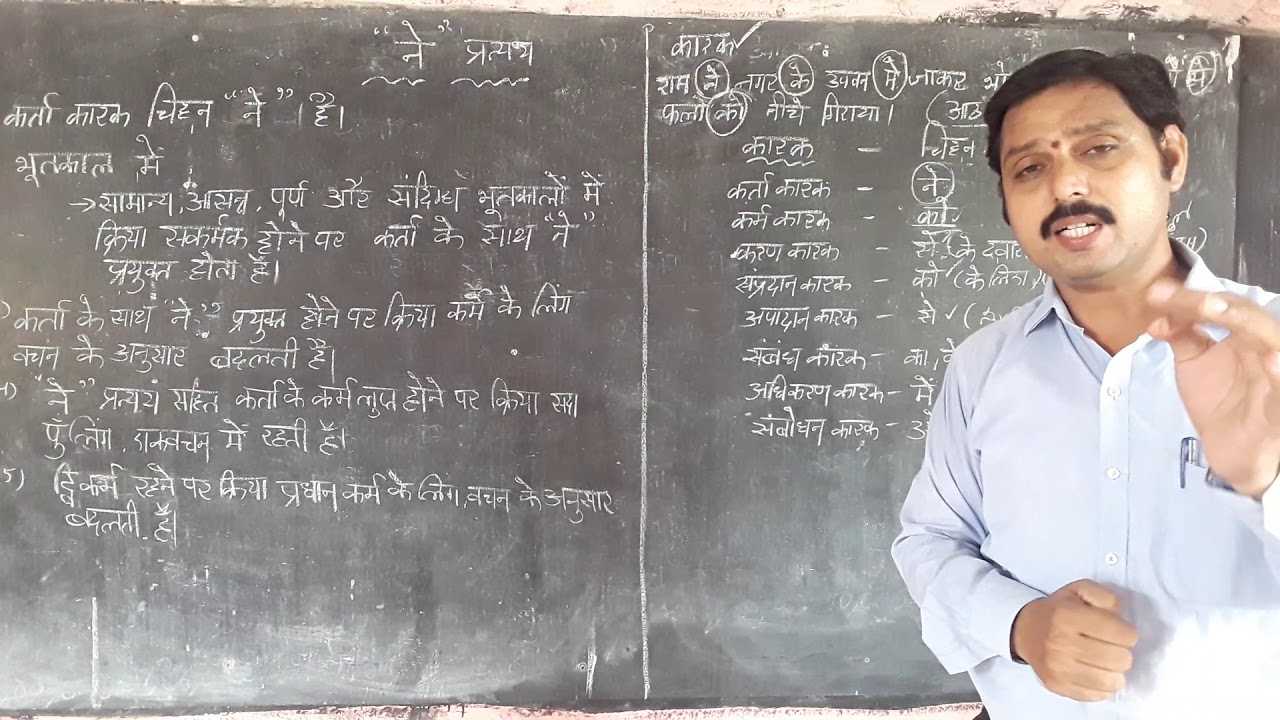 "ने" प्रत्यय
कर्ता कारक चिह्न "ने" है।
भूतकाल में
→ सामान्य, आसन्न, पूर्ण और संदिग्ध भूतकालों में
क्रिया सकर्मक होने पर कर्ता के साथ "ने"
प्रयुक्त होता है।
कर्ता के साथ "ने" प्रयुक्त होने पर क्रिया कर्म के लिंग
वचन के अनुसार बदलती है।
"ने" प्रत्यय सहित कर्ता के कर्म लुप्त होने पर क्रिया सदा
पुंलिंग, एकवचन में रहती है।
5) द्विकर्म रहने पर क्रिया प्रधान कर्म के लिंग, वचन के अनुसार
बदलती है।
कारक ✓
राम ने नगर के उपवन में जाकर
फलों को नीचे गिराया। (आठ
कारक – चिह्न
कर्ता कारक – ने
कर्म कारक – को
करण कारक – से (के द्वारा
संप्रदान कारक – को (के लिए
अपादान कारक – से ✓ (
संबंध कारक – का, के
अधिकरण कारक – में
संबोधन कारक –